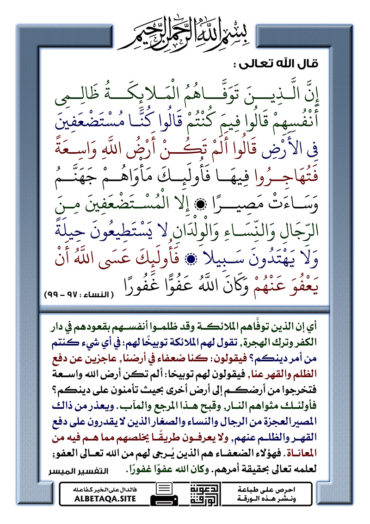 بسم الله الرحمن الرحيم
قال الله تعالى :
إِنَّ الَّذِيـنَ تَوَفَّـاهُمُ الْمَـلَائِكَـةُ ظَالِـمِي
أَنْفُسِهِمْ قَالُوا فِيمَ كُنْتُمْ قَالُوا كُنَّا مُسْتَضْعَفِينَ
فِي الأَرْضِ قَالُوا أَلَمْ تَكُـنْ أَرْضُ اللَّهِ وَاسِعَةً
فَتُهَاجِـرُوا فِيهَـا فَأُولَئِـكَ مَأْوَاهُـمْ جَهَنَّـمُ
وَسَـاءَتْ مَصِيـرًا ۞ إِلا الْمُسْتَضْعَفِينَ مِـنَ
الرِّجَالِ وَالنِّسَـاءِ وَالْوِلْدَانِ لا يَسْتَطِيعُونَ حِيلَةً
وَلَا يَهْتَدُونَ سَـبِيلا ۞ فَأُولَئِكَ عَسَى اللَّهُ أَنْ
يَعْفُوَ عَنْهُمْ وَكَانَ اللَّهُ عَفُوًّا غَفُورًا ( النساء : ٩٧ - ٩٩ )
أي إن الذين توفَّاهم الملائكـة وقد ظلمـوا أنفسـهم بقعودهم في دار
الكفر وترك الهجرة, تقول لهم الملائكة توبيخًا لهم: في أي شيء كنتم
من أمر دينكم؟ فيقولون: كنا ضعفاء في أرضنا, عاجزين عن دفع
الظلم والقهر عنا, فيقولون لهم توبيخا: ألم تكن أرض الله واسـعة
فتخرجوا من أرضكـم إلى أرض أخرى بحيث تأمنون على دينكم؟
فأولئـك مثواهم النـار, وقبح هـذا المرجع والمآب. ويعذر من ذاك
المصير العجزة من الرجال والنساء والصغار الذين لا يقدرون على دفع
القهـر والظلـم عنهم, ولا يعرفـون طريقًـا يخلصهم مما هـم فيه من
المعانـاة. فهؤلاء الضعفـاء هم الذين يُـرجى لهم من الله تعـالى العفو;
لعلمه تعالى بحقيقة أمرهم. وكان الله عفوًا غفورًا. التفسير الميسر
احرص على طباعة
ونشـر هـذه الورقـة
الدعوية
الورقة
فالدال على الخير كفاعله
ALBETAQA.SITE